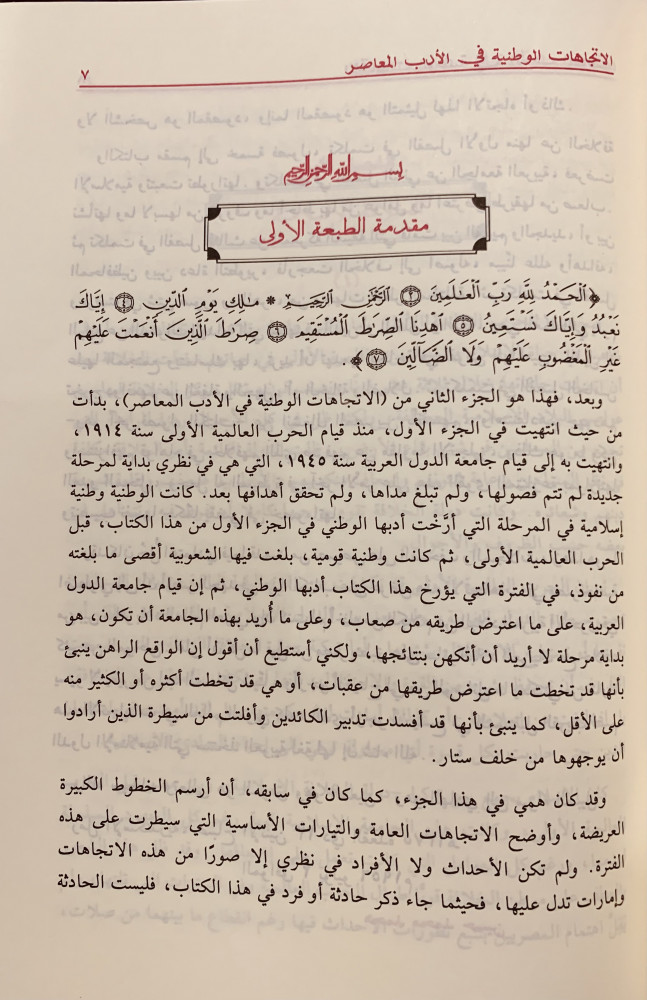 الاتجاهات الوطنية في الأدب المعاصر
٧
بسم الله الرحمن الرحيم
مقدمة الطبعة الأولى
﴿الْحَمْدُ لِلَّهِ رَبِّ الْعَالَمِينَ ۝٢ الرَّحْمَٰنِ الرَّحِيمِ * مَالِكِ يَوْمِ الدِّينِ ۝٤ إِيَّاكَ
نَعْبُدُ وَإِيَّاكَ نَسْتَعِينُ ۝٥ اهْدِنَا الصِّرَاطَ الْمُسْتَقِيمَ ۝٦ صِرَاطَ الَّذِينَ أَنْعَمْتَ عَلَيْهِمْ
غَيْرِ الْمَغْضُوبِ عَلَيْهِمْ وَلَا الضَّالِّينَ ۝٧﴾.
وبعد، فهذا هو الجزء الثاني من (الاتجاهات الوطنية في الأدب المعاصر)، بدأت
من حيث انتهيت في الجزء الأول، منذ قيام الحرب العالمية الأولى سنة ١٩١٤،
وانتهيت به إلى قيام جامعة الدول العربية سنة ١٩٤٥، التي هي في نظري بداية لمرحلة
جديدة لم تتم فصولها، ولم تبلغ مداها، ولم تحقق أهدافها بعد. كانت الوطنية وطنية
إسلامية في المرحلة التي أرَّخْت أدبها الوطني في الجزء الأول من هذا الكتاب، قبل
الحرب العالمية الأولى، ثم كانت وطنية قومية، بلغت فيها الشعوبية أقصى ما بلغته
من نفوذ، في الفترة التي يؤرخ هذا الكتاب أدبها الوطني، ثم إن قيام جامعة الدول
العربية، على ما اعترض طريقه من صعاب، وعلى ما أُريد بهذه الجامعة أن تكون، هو
بداية مرحلة لا أريد أن أتكهن بنتائجها، ولكني أستطيع أن أقول إن الواقع الراهن ينبئ
بأنها قد تخطت ما اعترض طريقها من عقبات، أو هي قد تخطت أكثره أو الكثير منه
على الأقل، كما ينبئ بأنها قد أفسدت تدبير الكائدين وأفلتت من سيطرة الذين أرادوا
أن يوجهوها من خلف ستار.
وقد كان همي في هذا الجزء، كما كان في سابقه، أن أرسم الخطوط الكبيرة
العريضة، وأوضح الاتجاهات العامة والتيارات الأساسية التي سيطرت على هذه
الفترة. ولم تكن الأحداث ولا الأفراد في نظري إلا صورًا من هذه الاتجاهات
وإمارات تدل عليها، فحيثما جاء ذكر حادثة أو فرد في هذا الكتاب، فليست الحادثة